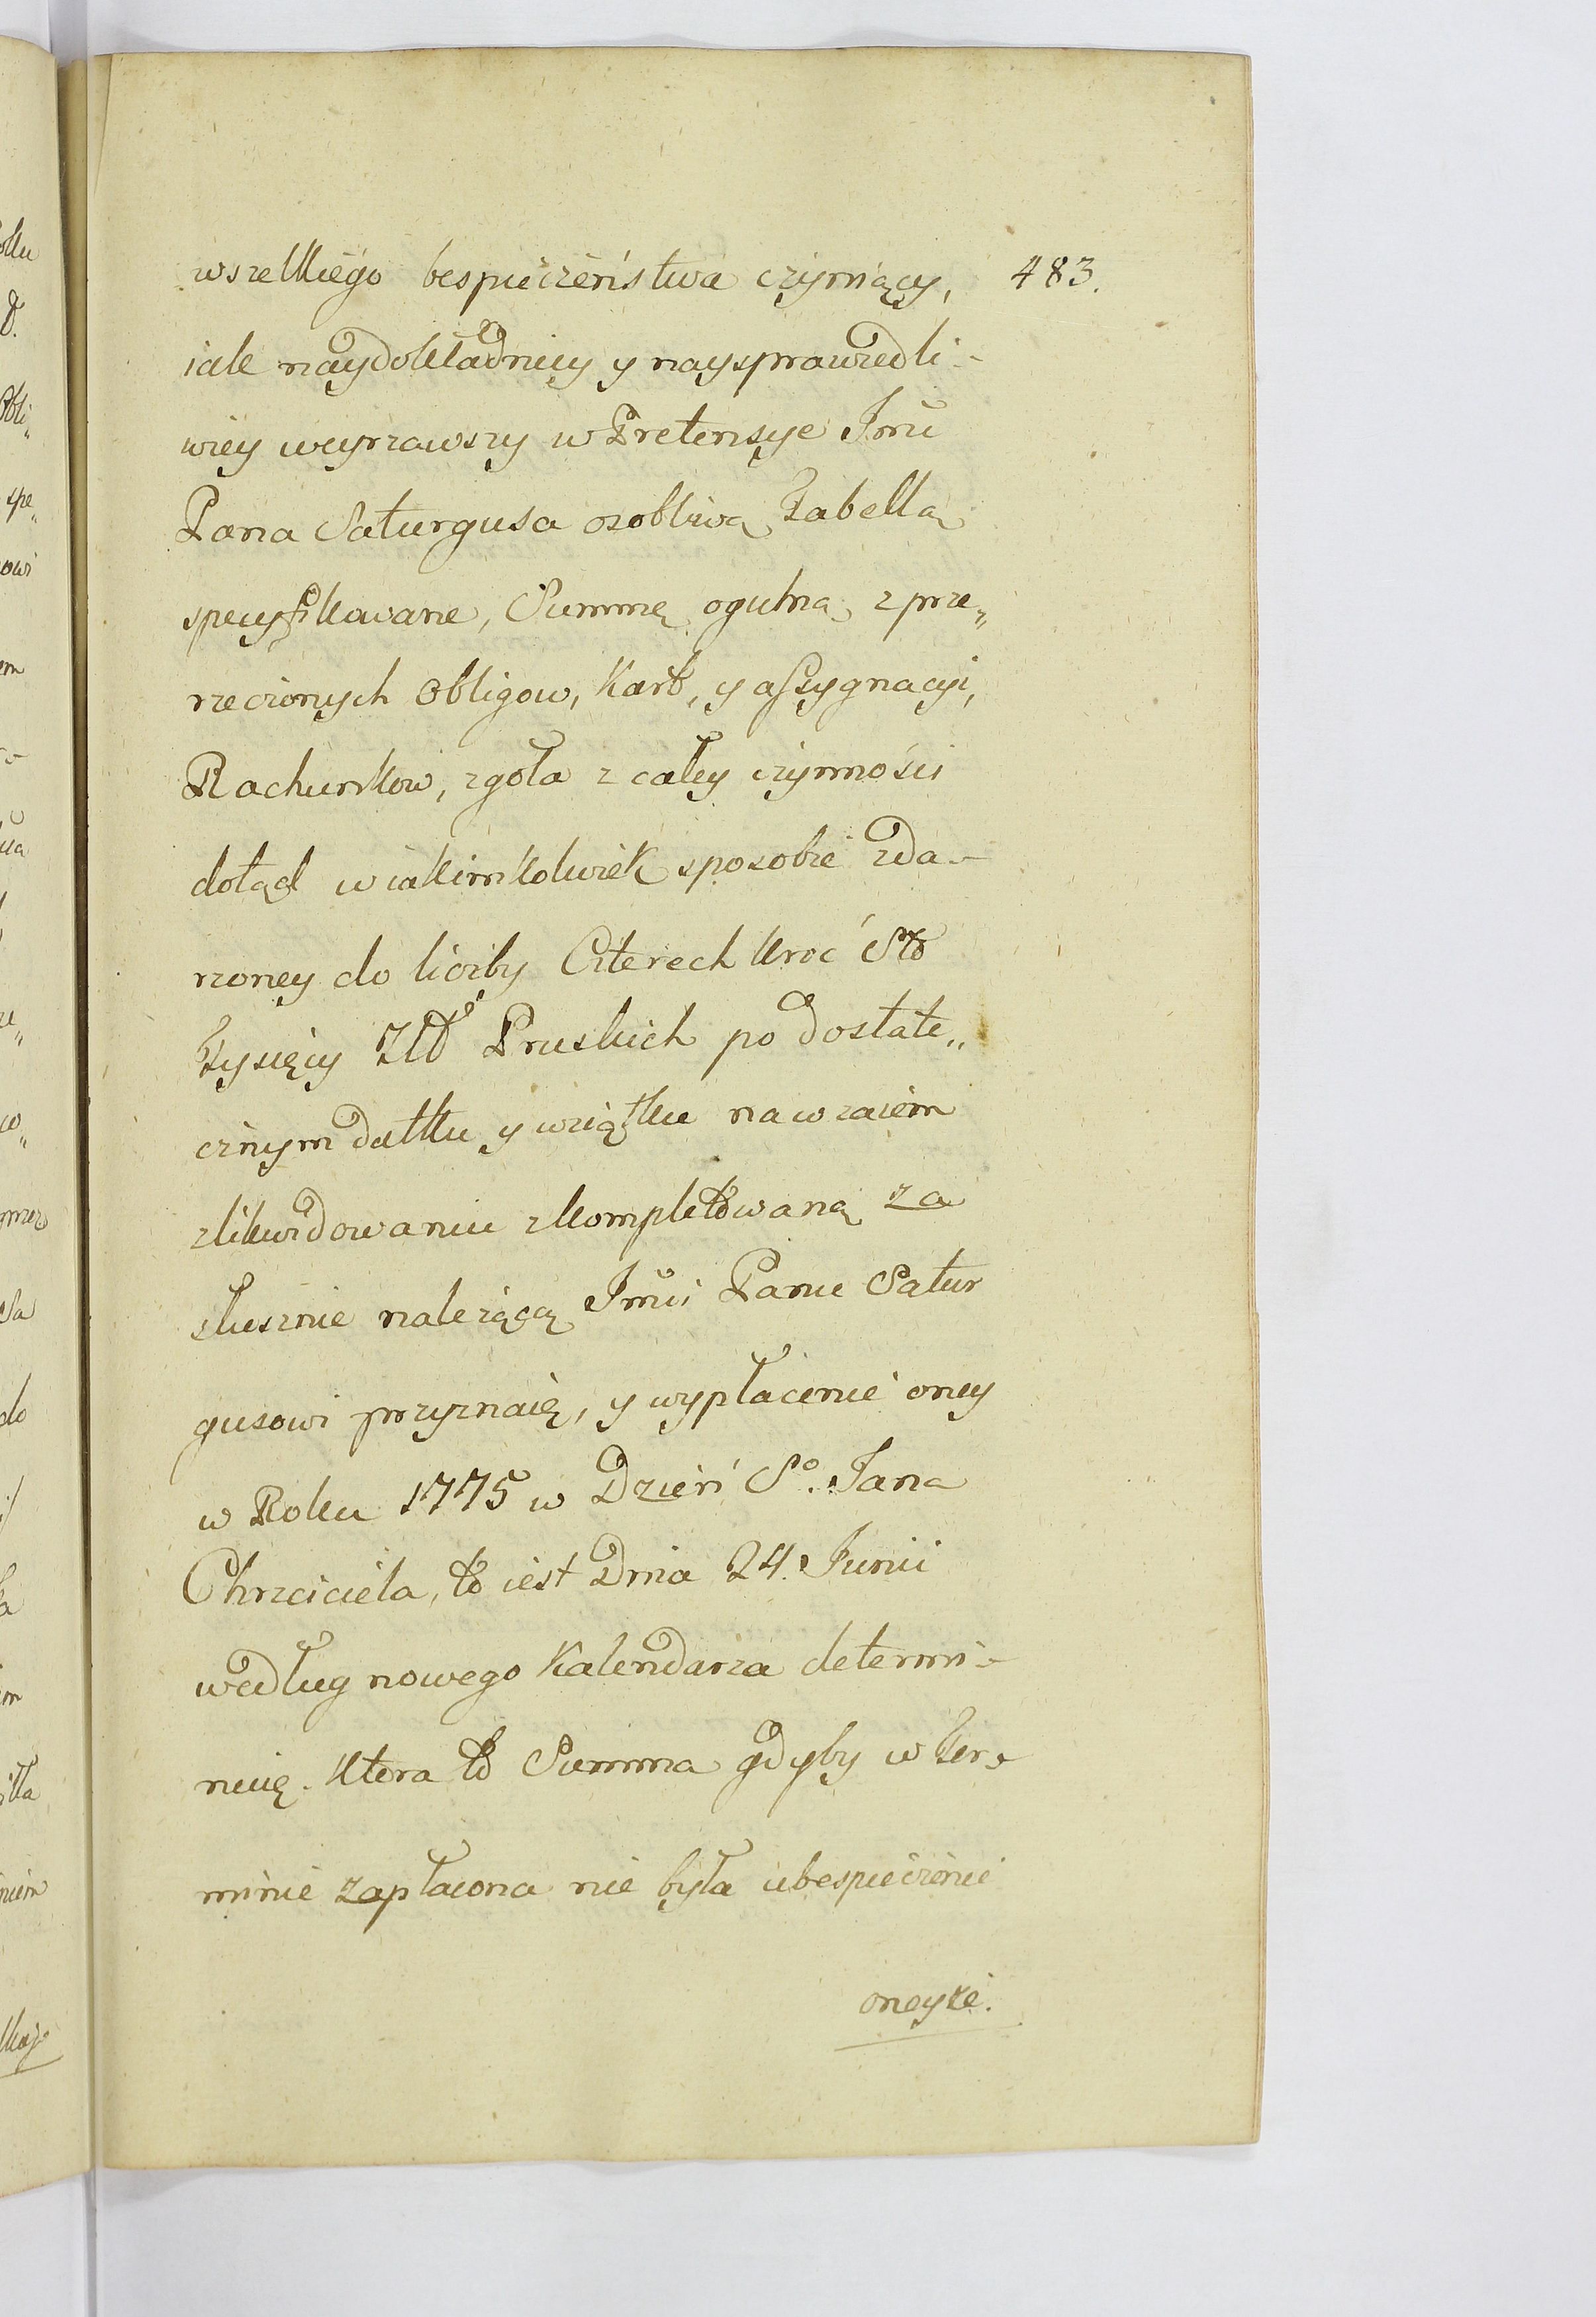 wszelkiego bespieczeństwa czyniący, 483.
iak naydokładniey y naysprawiedli-
wiey weyrzawszy w Pretensye Jmci
Pana Saturgusa osobliwą Tabellą
specyfikowane, Summę ogulną z prze„
rzeczonych Obligow, Kart, y assygnacyi,
Rachunkow, zgoła z całey czynności
dotąd w iakimkolwiek sposobie zda-
rzoney do liczby Czterech kroć Sto
Tysięcy Złt Pruskich po dostate„
cznym datku y wziątku nawzaiem
zlikwidowaniu skompletowaną za
słusznie należącą Jmci Panu Satur
gusowi przyznaię, y wypłacenie oney
w Roku 1775 w Dzień So. Jana
Chrzciciela, to iest Dnia 24. Junii
według nowego Kalendarza determi-
nuię. Ktora to Summa gdyby w Ter-
minie zapłacona nie była ubespieczenie
oneyże.